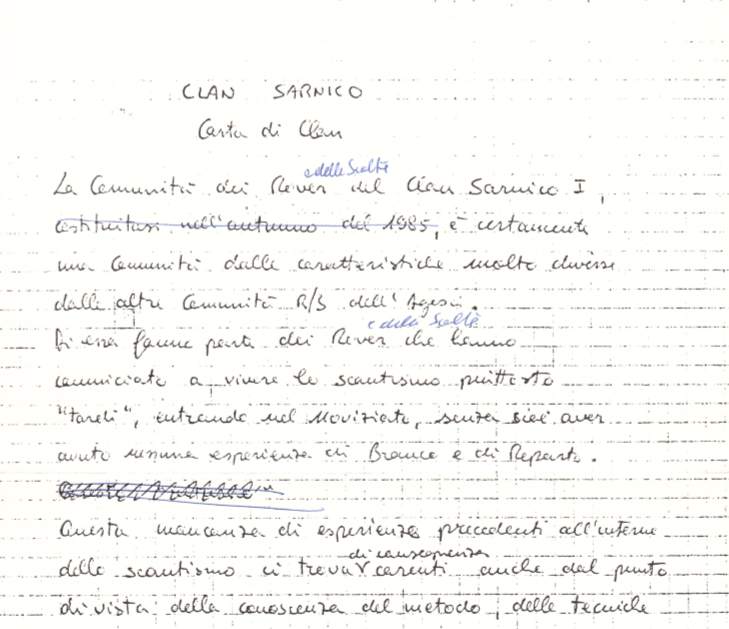 CLAN SARNICO
Carta di Clan
e delle Scolte
La Comunità dei Rover del Clan Sarnico I,
costituitasi nell'autunno del 1985, è certamente
una Comunità dalle caratteristiche molto diverse
dalle altre Comunità R/S dell'Agesci.
e delle Scolte
Di essa fanno parte dei Rover che hanno
cominciato a vivere lo scautismo piuttosto
"tardi", entrando nel Noviziato, senza cioè aver
avuto nessuna esperienza di Branco e di Reparto.
Questa mancanza di esperienze precedenti all'interno
di conseguenza
dello scautismo ci trova carenti anche dal punto
di vista della conoscenza del metodo, delle tecniche